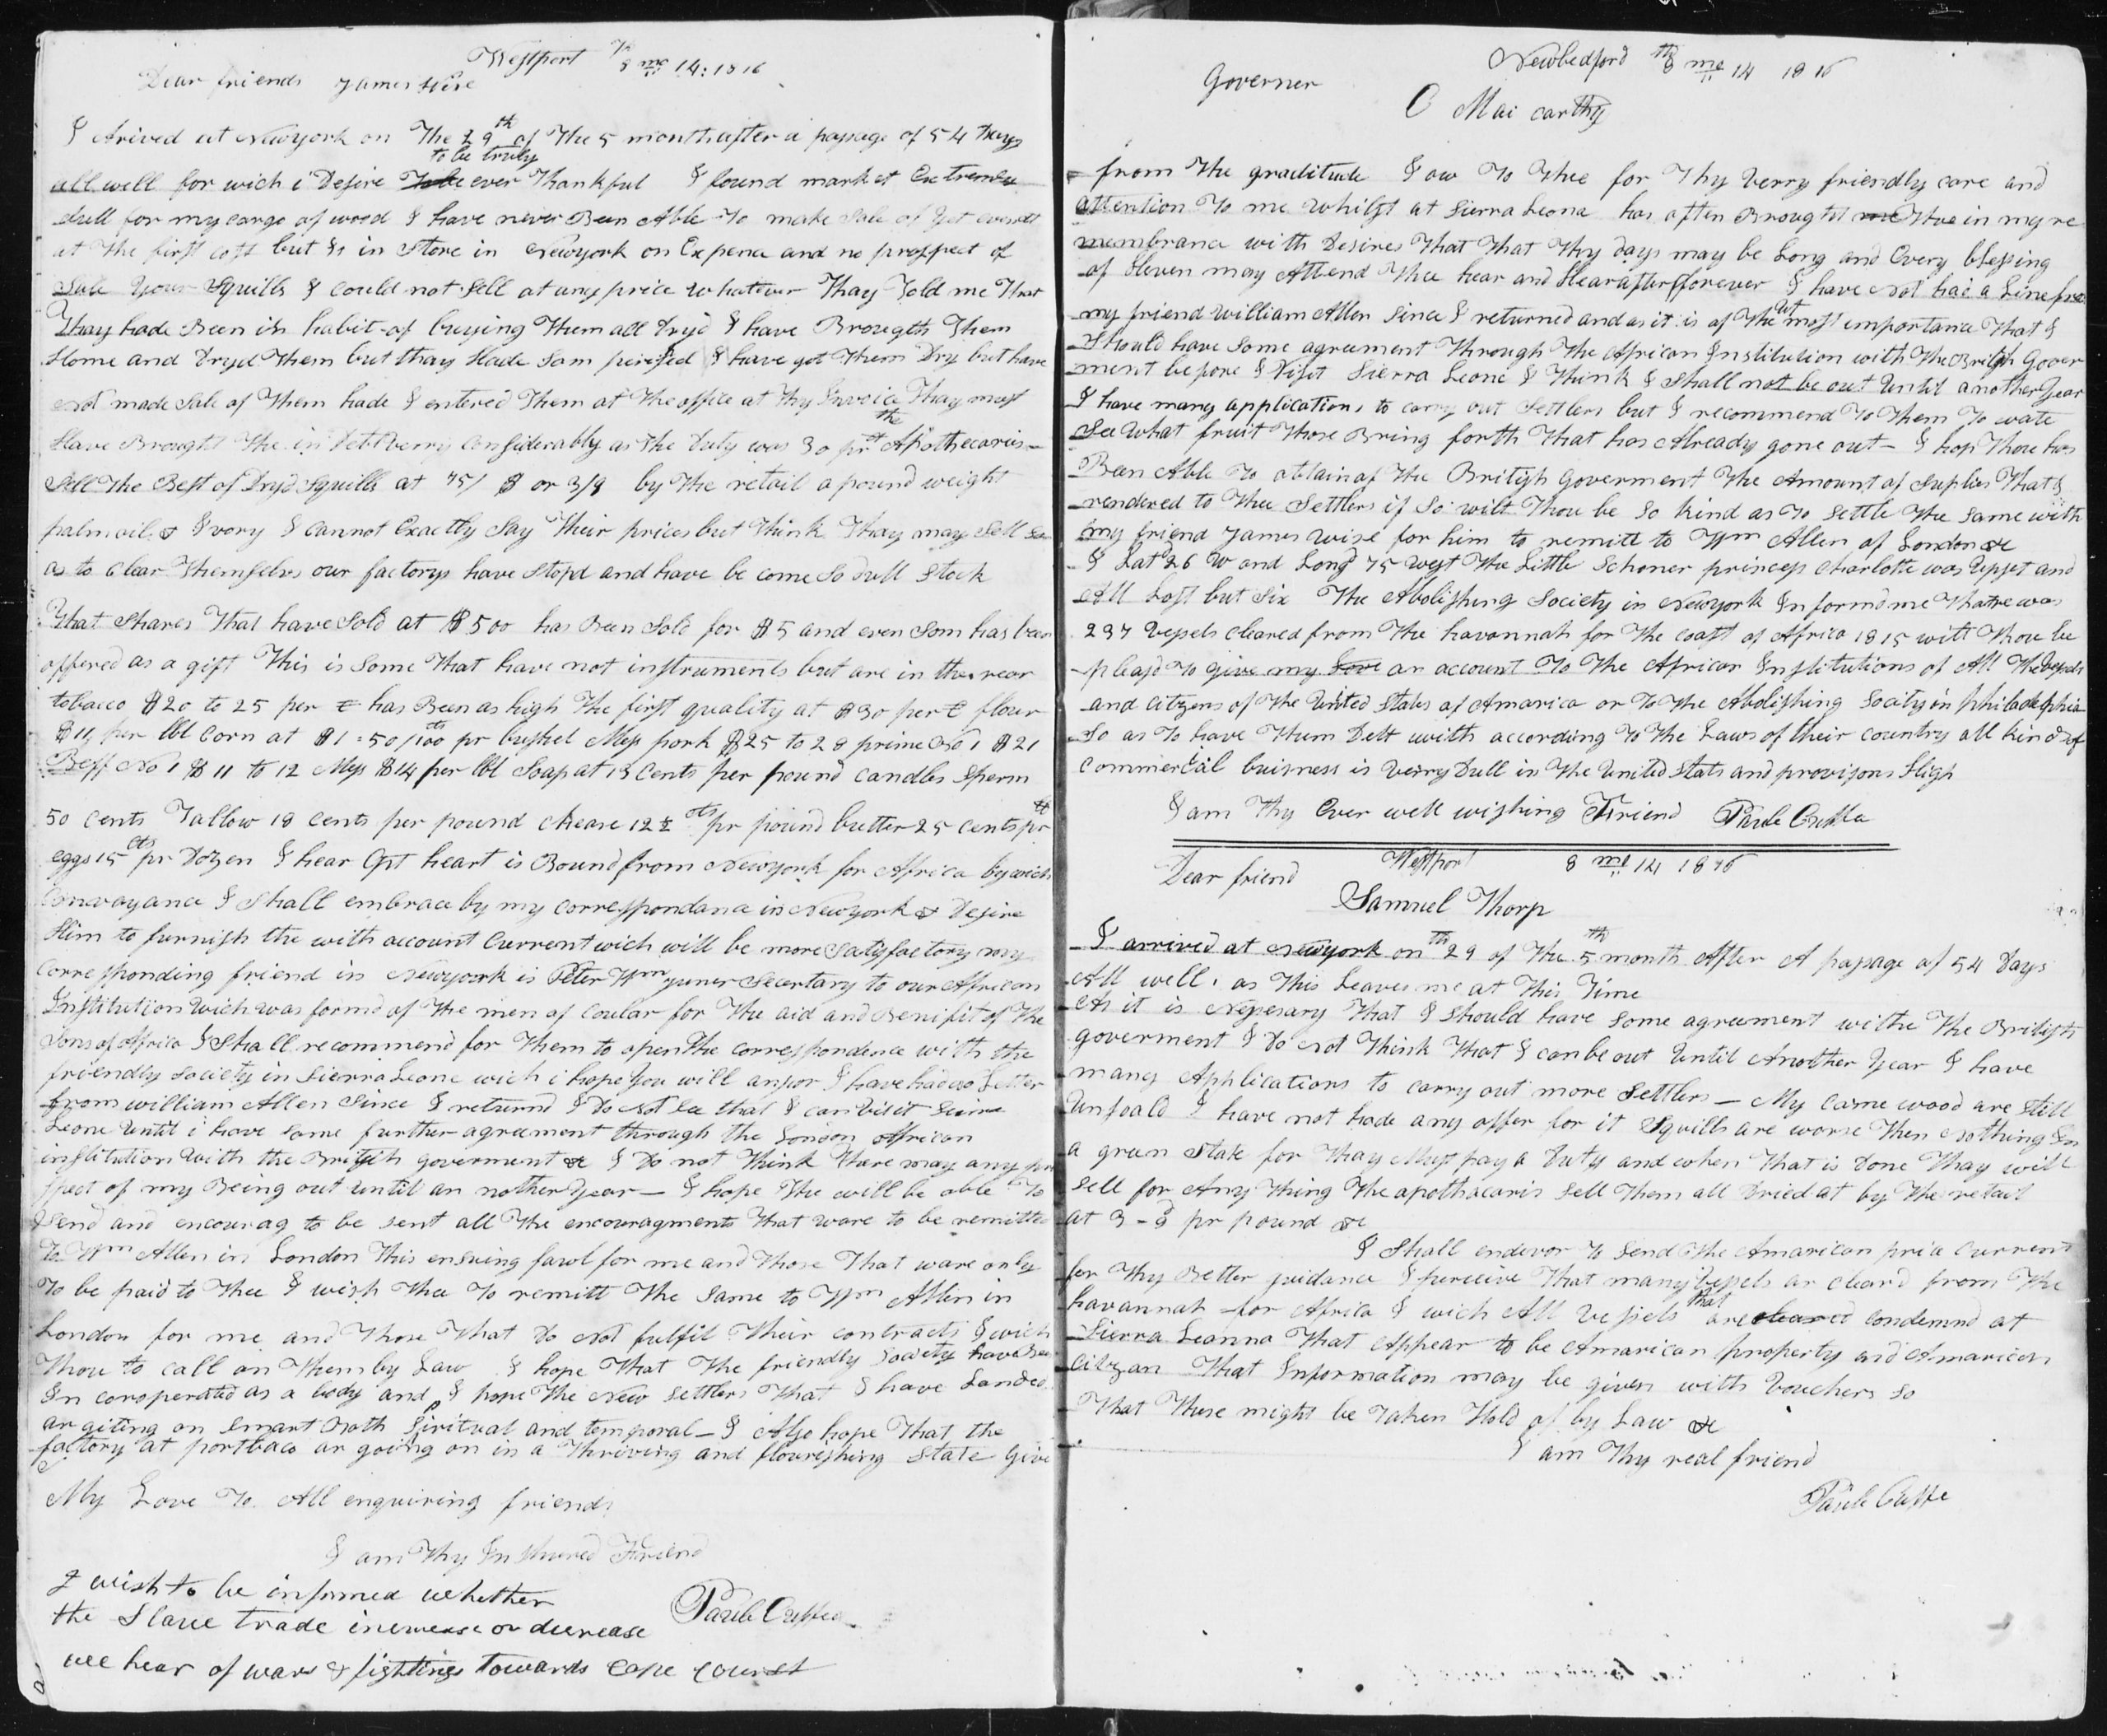 Westport 8th mo 14: 1816
Dear friends James Wise
I Arived at Newyork on The 29th of The 5 month after a passage of 54 Days
all well for wich i Desire to be truly ever Thankful I found market Extremly
dull for my cargo of wood I have never Been Able To make Sale of Yet
at The first cost but is in Store in Newyork on Expence and no prospect of
Sale Your Squills I could not Sell at any price whatever Thay Told me That
Thay hade Been in habit of buying Them all Dry'd I have Broughth Them
Home and Dryd Them but thay Hade Som perished I have got Them Dry but have
not made Sale of Them hade I entered Them at The office at Thy Invoice Thay must
Have Brought The in Debt Verry Considerably as The Duty was 30 pr ct the Apothecaris
Sell The Best of Dryd Squills at 75/ $ or 3/9 by The retail a pound weight
palm oil & Ivory I cannot Exactly Say Their prices but Think Thay may Sell So
as to Clear Themselvs our factorys have Stopd and have be come So dull Stock
That Shares That have Sold at $500 has Been Sold for $5 and even Som has been
offered as a gift This is Some That have not instruments but are in the rear
tobacco $20 to 25 per C has Been as high The first quality at $30 per C flour
$11 per bbl Corn at $1:50/100 pr bushel Mess pork $25 to 28 prime No 1 $21
Beff No 1 $11 to 12 Mess $14 per bbl Soap at 13 Cents per pound candles Sperm
50 Cents Tallow 18 cents per pound chease 12½ cts pr pound butter 25 cents pr lb
eggs 15 cts pr Dozen I hear Cpt heart is Bound from Newyork for Africa by wich
Convayance I Shall embrace by my correspondance in Newyork & Desire
Him to furnish the with account Current wich will be more Satisfactory my
Corresponding friend in Newyork is Peter Wm Secertary to our African
Institution Wich was form'd of The men of Coular for The aid and Benifit of The
Sons of Africa I Shall recommend for Them to open The correspondence with the
friendly Society in Sierra Leone wich i hope You will I have had no Letter
from william Allen Since I returnd I Do Not See that I can Visit Seirra
Leone Until i have some further agreement through the London African
institution With the British goverment &c I Do not Think Thare may any pro
spect of my Being out Until an nother Year — I hope The will be able To
Send and encourag to be sent all The encouragments That ware to be remitted
To Wm Allen in London This ensuing fawl for me and Those That ware only
To be paid to Thee I wish Thee To remitt The Same to Wm Allen in
London for me and Those That Do Not fulfil Their contracts I wich
Thou to call on Them by Law I hope That The friendly Society have Been
In corsperated as a body and I hope The New Settlers That I have Landed
ar giting on Smart Both Spiritual and temporal — I Also hope That the
factory at portbaco ar going on in a Thriving and flourishing State Give
My Love To All enquiring friends
I am Thy Friend
Paule Cuffee
I wish to be informed whether
the Slave trade increase or decrease
we hear of wars & fightings towards Cape Coast
Newbedford 8th mo 14 1816
Governer
C Mai carthy
from The graditude I ow To Thee for Thy Verry friendly care and
attention To me whilst at Sierra Leona has often Brought me Thee in my re
membrance with Desires That That Thy days may be Long and Every blessing
of Heven may Attend Thee hear and Hearafter forever I have Not had a Line from
my friend William Allen Since I returned and as it is of The utmost importance That I
Should have Some agreement Through The African Institution with The British Gover
ment before I Visit Sierra Leone I Think I Shall not be out Until another Year
I have many applications to carry out Settlers but I recommend To Them To wate
See What fruit Those Bring forth That has Already gone out — I hop Thou has
Been Able To obtain of The British Goverment The Amount of Suplies That I
rendered to Thee Settlers if So wilt Thou be So Kind as To Settle The Same with
my friend James Wise for him to remitt to Wm Allen of London &c
I Latd 26 W and Longd 75 West The Little Schoner princess Charlotte was Upset and
All Lost but Six The Abolishing Society in Newyork Informd me Thatre was
237 Vessels cleared from The havannah for The coast of Africa 1815 will Thou be
pleas'd To give my Love an account To The African Institutions of All The Vessels
and Citizens of The United States of Amarica or To The Abolishing Socity in philadelphia
So as To have Them Delt with according To The Laws of their country all kind of
commercial buisness is Verry Dull in The United Stats and provisons High
I am Thy Ever well wishing Friend Paule Cuffee
Westport 8 mo 14 1816
Dear friend
Samuel Thorp
I arrived at Newyork on th 29 of The 5th month After A passage of 54 Days
All well. as This Leaves me at This Time
As it is Nessesary That I Should have Some agreement withe The British
goverment I Do Not Think That I can be out Until Another Year I have
many Applications to carry out more Settlers — My Came wood are Still
Unsoald I have not hade any offer for it Squills are worse Then Nothing In
a green State for Thay Must pay a Duty and when That is Done Thay will
Sell for Any Thing The apothacaris Sell Them all Dried at by The retail
at 3-9 pr pound &c
I Shall endevor To Send The Amarican price Current
for Thy Better guidance I purceive That many Vessels ar cleard from The
havannah for Africa I wich All Vessels that are cleared condemnd at
Sierra Leanna That Appear to be Amarican property and Amarican
Citizan That Information may be given with Vouchers So
That These might be Taken Hold of by Law &c
I am Thy real friend
Paule Cuffe